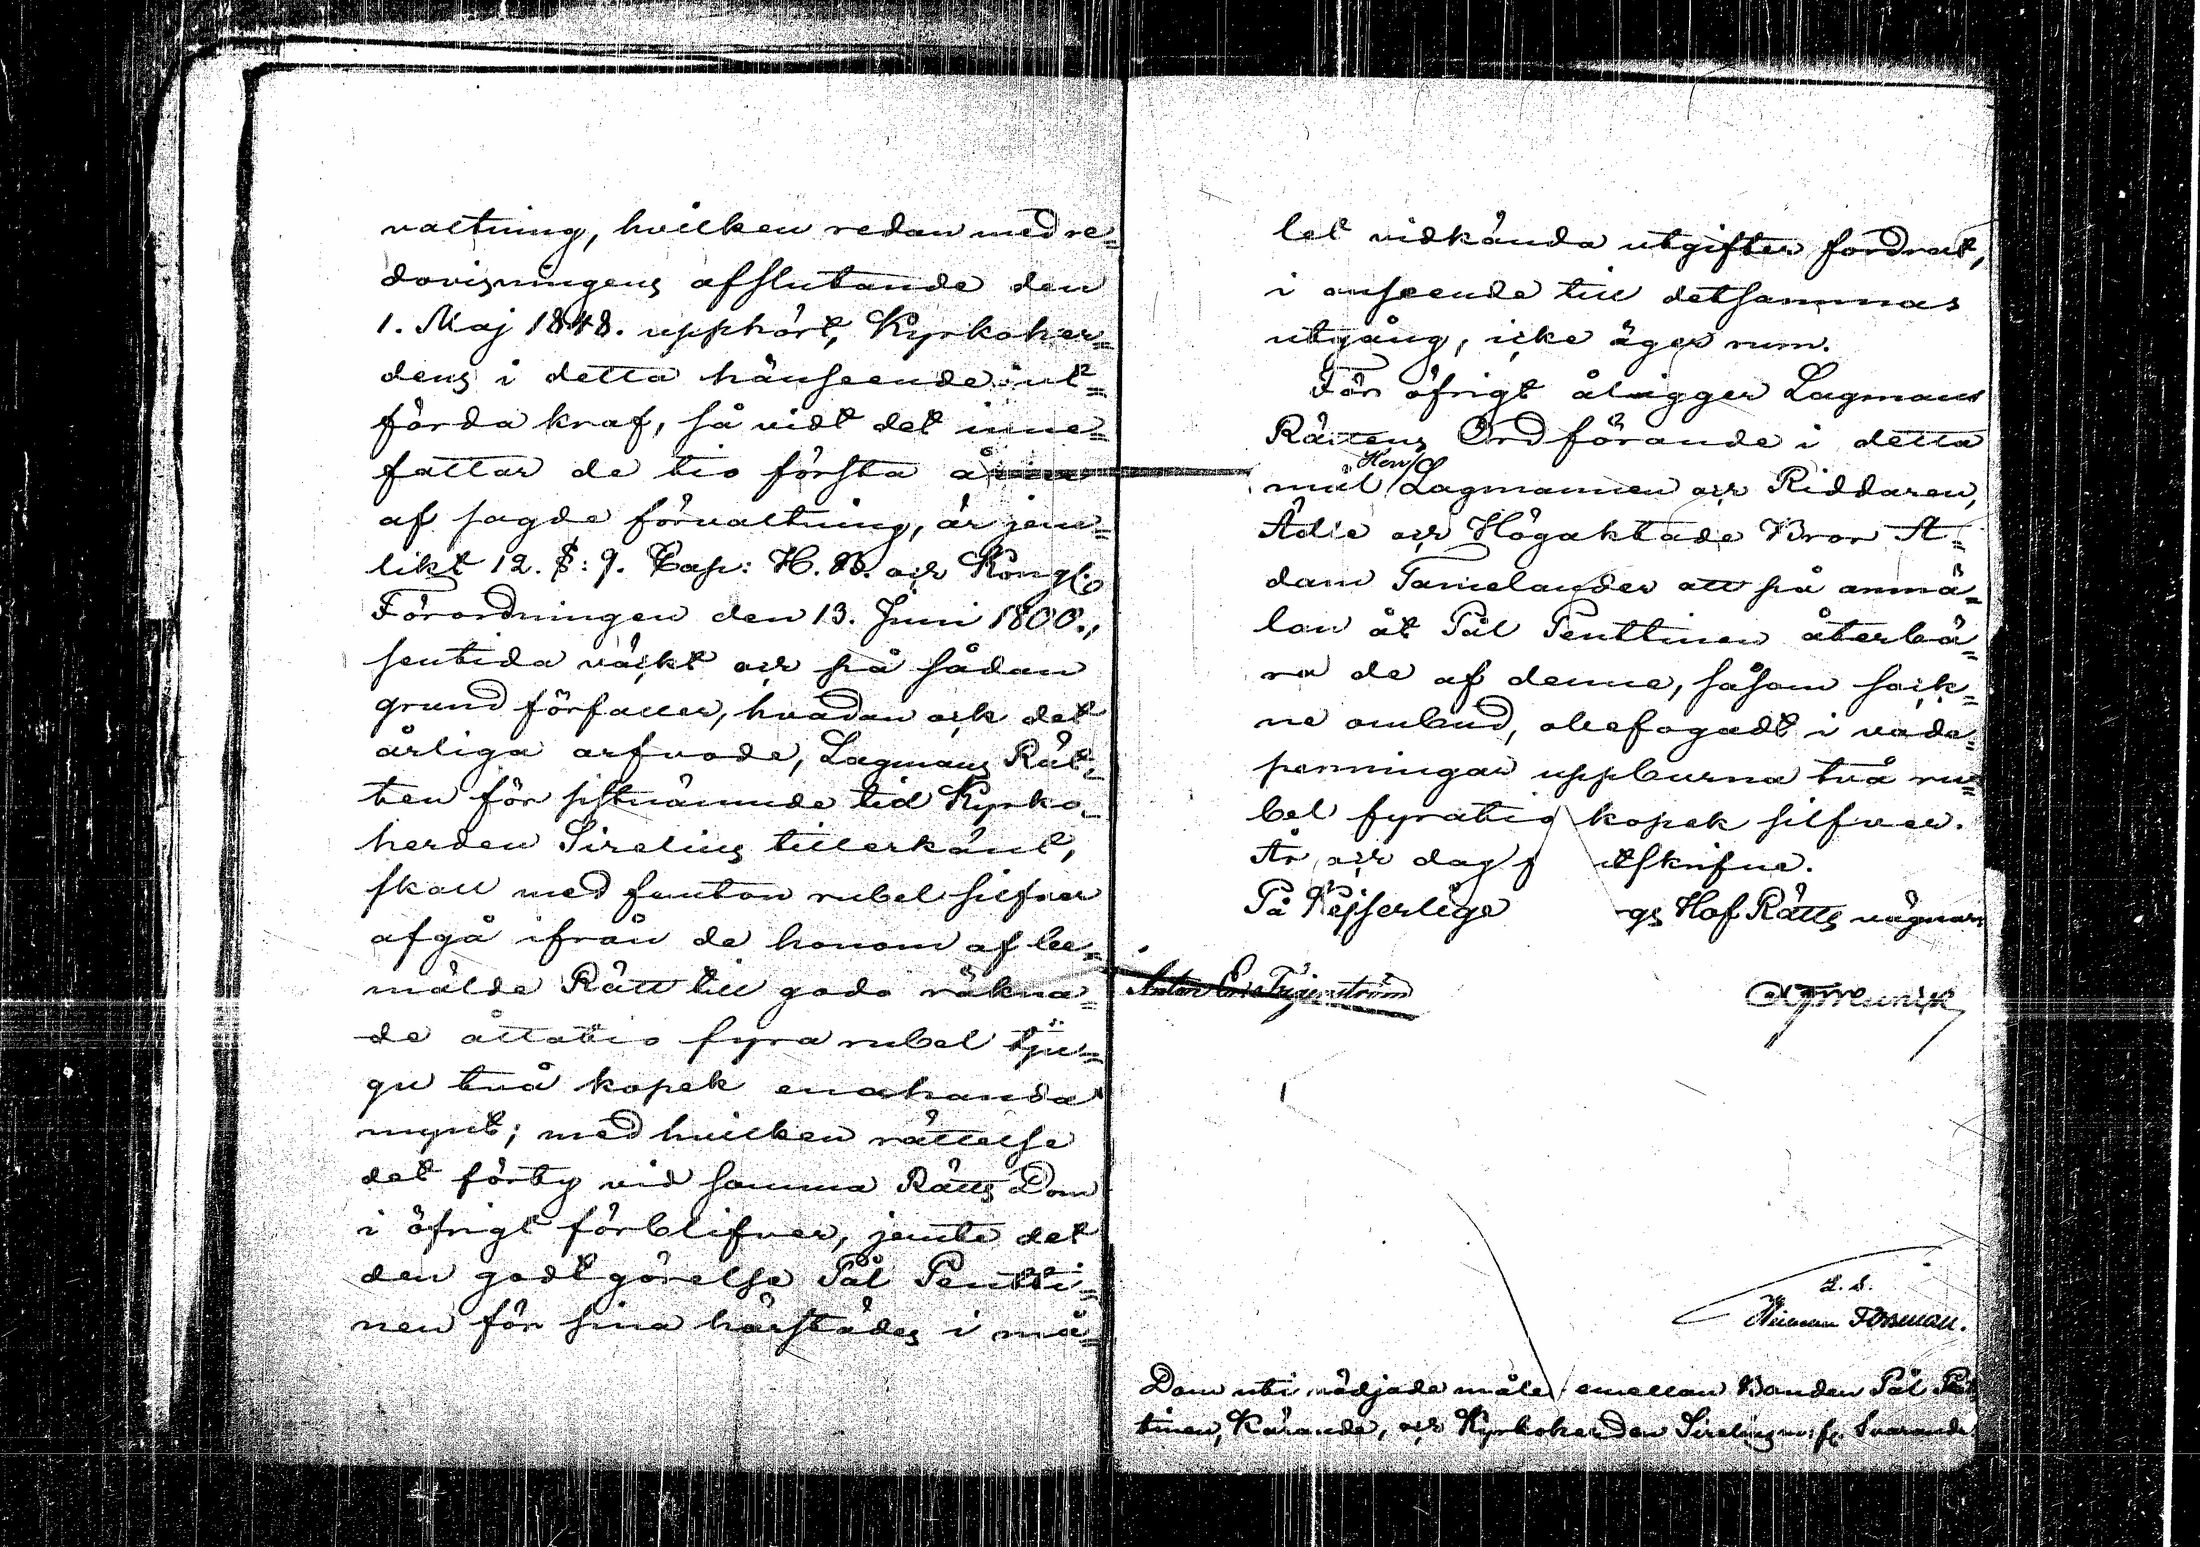 valtning, hvilken redan med re=
dovisningens afslutande den
1. Maj 1848. upphört, Kyrkoher=
dens i detta hänseende ut=
förda kraf, så vidt det inne=
fattar de tio första åren
af sagde förvaltning, är jem=
likt 12. §: 9. Cap: H. B. och Kongl.
Förordningen den 13. Juni 1800.,
sentida väckt och på sådan
grund förfaller, hvadan ock det
årliga arfvode, Lagmans Rät=
ten för sistnämnde tid Kyrko=
herden Sirelius tillerkänt,
skall med femton rubel silfver
afgå ifrån de honom af be=
mälde Rätt till godo räkna=
de åttatio fyra rubel tju=
gu två kopek enahanda
mynt; med hvilken rättelse
det förty vid samma Rätts Dom
i öfrigt förblifver, jemte det
den godtgörelse Pål Pentti=
nen för sina härstädes i må=
let vidkända utgifter fordrat,
i anseende till detsammas
utgång, icke äger rum.
För öfrigt åligger Lagmans
Rättens Ordförande i detta
mål Herr Lagmannen och Riddaren,
Ädle och Högaktade Bror A=
dam Tamelander att på anmä=
lan åt Pål Penttinen återbä=
ra de af denne, såsom sock=
ne ombud, obefogadt i vade=
penningar uppburna två ru=
bel fyratio kopek silfver.
År och dag utskrifne.
På Kejserlige gs Hof Rätts vägnar
L. S.
Forsman.
Dom uti vädjade målet emellan Bonden Pål Pent
tinen, Kärande, och Kyrkoherden Sirelius m: fl. Svarande